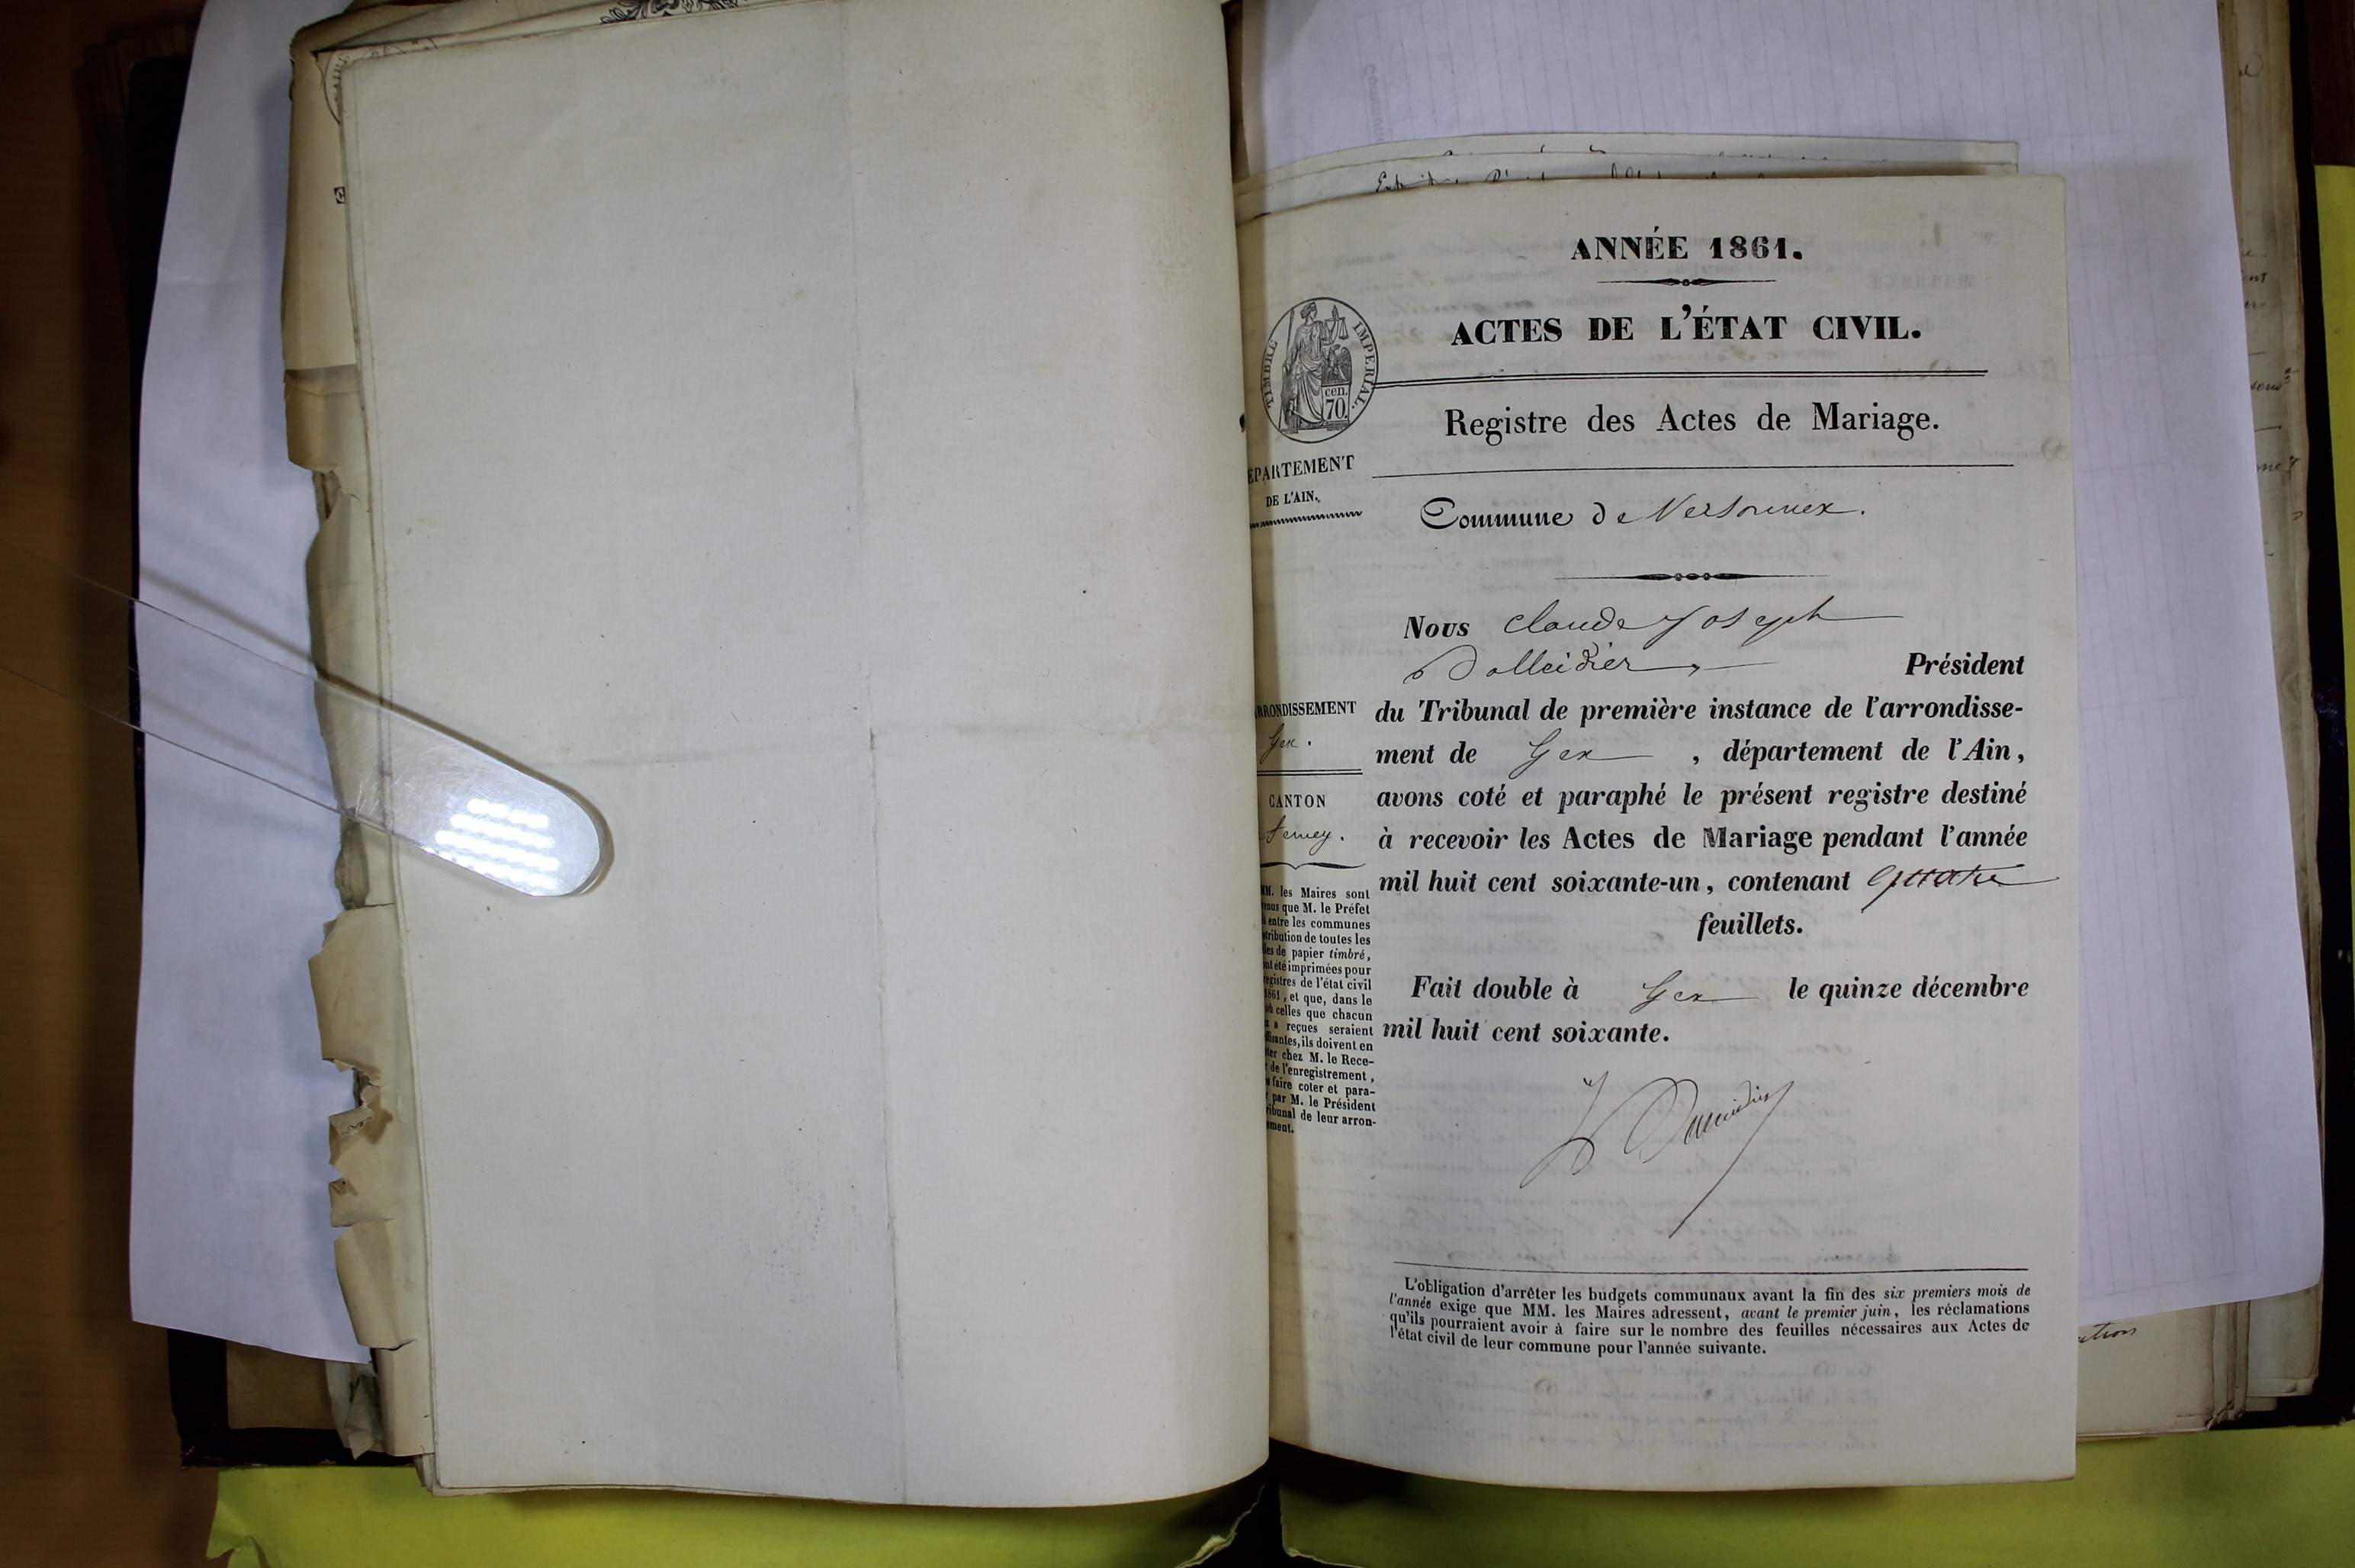 ANNÉE 1861.
ACTES DE L'ÉTAT CIVIL.
TIMBRE IMPERIAL.
cen.
70.
Registre des Actes de Mariage.
EPARTEMENT
DE L'AIN.
Commune de Versonnex.
Nous Claude Joseph
Président
du Tribunal de première instance de l'arrondisse-
ment de Gex , département de l'Ain,
avons coté et paraphé le présent registre destiné
à recevoir les Actes de Mariage pendant l'année
mil huit cent soixante-un, contenant quatre
feuillets.
Fait double à Gex le quinze décembre
mil huit cent soixante.
RRONDISSEMENT
Gex.
CANTON
Ferney.
MM. les Maires sont
enus que M. le Préfet
entre les communes
stribution de toutes les
les de papier timbré,
nt été imprimées pour
registres de l'état civil
1861, et que, dans le
où celles que chacun
a reçues seraient
ffisantes, ils doivent en
ter chez M. le Rece-
de l'enregistrement,
faire coter et para-
par M. le Président
ribunal de leur arron-
ement.
L'obligation d'arrêter les budgets communaux avant la fin des six premiers mois de
l'année exige que MM. les Maires adressent, avant le premier juin, les réclamations
qu'ils pourraient avoir à faire sur le nombre des feuilles nécessaires aux Actes de
l'état civil de leur commune pour l'année suivante.